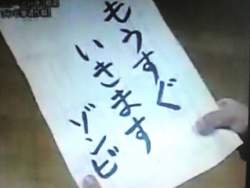 もうすぐ
いきます
ゾンビ